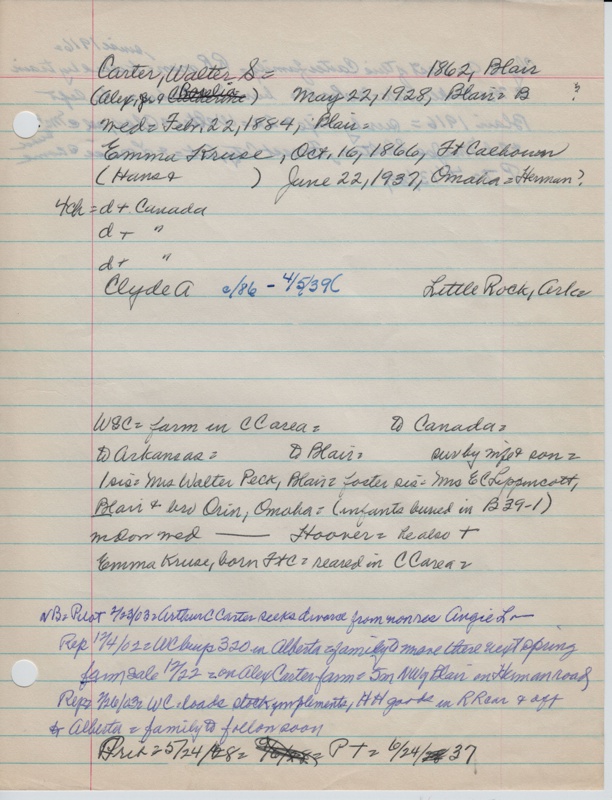 Carter, Walter S = 1862, Blair
(Alex, jr & Rosalia) May 22, 1928, Blair = B ?
med = Feb. 22, 1884, Blair =
Emma Kruse, Oct. 16, 1866, Ft Calhoun
(Hans & ) June 22, 1937, Omaha = Herman?
4ch = d + Canada
d + "
d + "
Clyde A c/86 - 4/5/39( Little Rock, Ark =
WSC = farm in CC area = to Canada =
to Arkansas = to Blair = surv by & son =
1 sis = Mrs Walter Peck, Blair = foster sis = Mrs EC Lippincott,
Blair & bro Orin, Omaha = (infants buried in B 39-1)
med — Hoover = he also +
Emma Kruse, born Ft C = reared in CC area =
NB = Pilot 7/23/03 = Arthur C Carter seeks divorce from nonres Angie L —
Rep 12/4/02 = WC buys 320 in Alberta = family to move there next spring
farm sale 12/22 = on Alex Carter farm = 5m NW of Blair on Herman road
Rep = 2/26/03 = WC loads stock implements, HH goods in RR car & off
to Alberta = family to follow soon
Trib = 5/24/28 = PT = 6/24/37